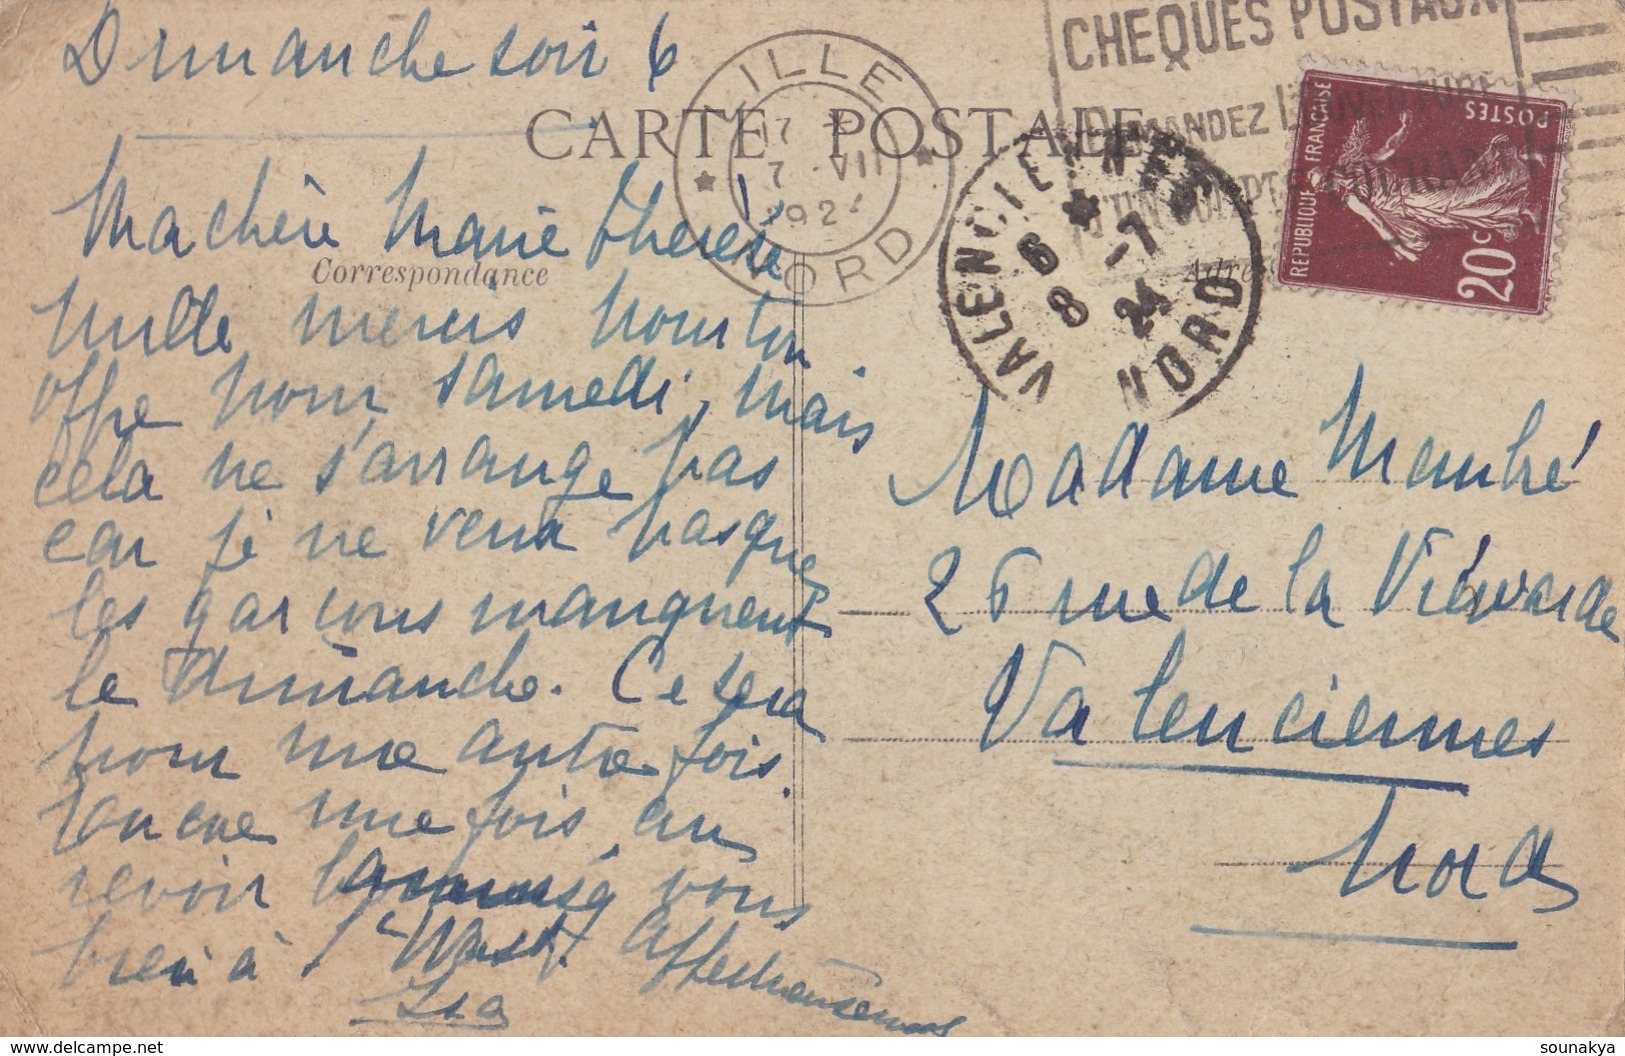 Dimanche soir 6
CARTE POSTALE
Correspondance
Adres
Ma chère Marie Thérèse
Mille mercis pour ton
offre pour samedi, mais
cela ne s'arrange pas
car je ne veux pas que
les garçons manquent
le Dimanche. Ce sera
pour une autre fois.
Encore une fois, au
revoir
vous
bien à
Affectueusement
Isa
LILLE
NORD
17
7 VII
192
CHEQUES POSTAUX
DEMANDEZ L'OUVERTURE
COURANT
VALENCIENNES
NORD
6 -7
8 24
REPUBLIQUE FRANÇAISE
POSTES
20c
Madame Maubré
26 rue de la Viéwarde
Valenciennes
Nord
delcampe.net
sounakya